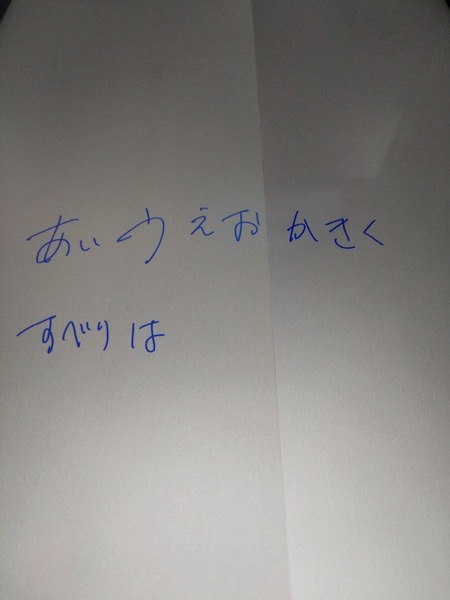 あいウえおかきく
すべりは